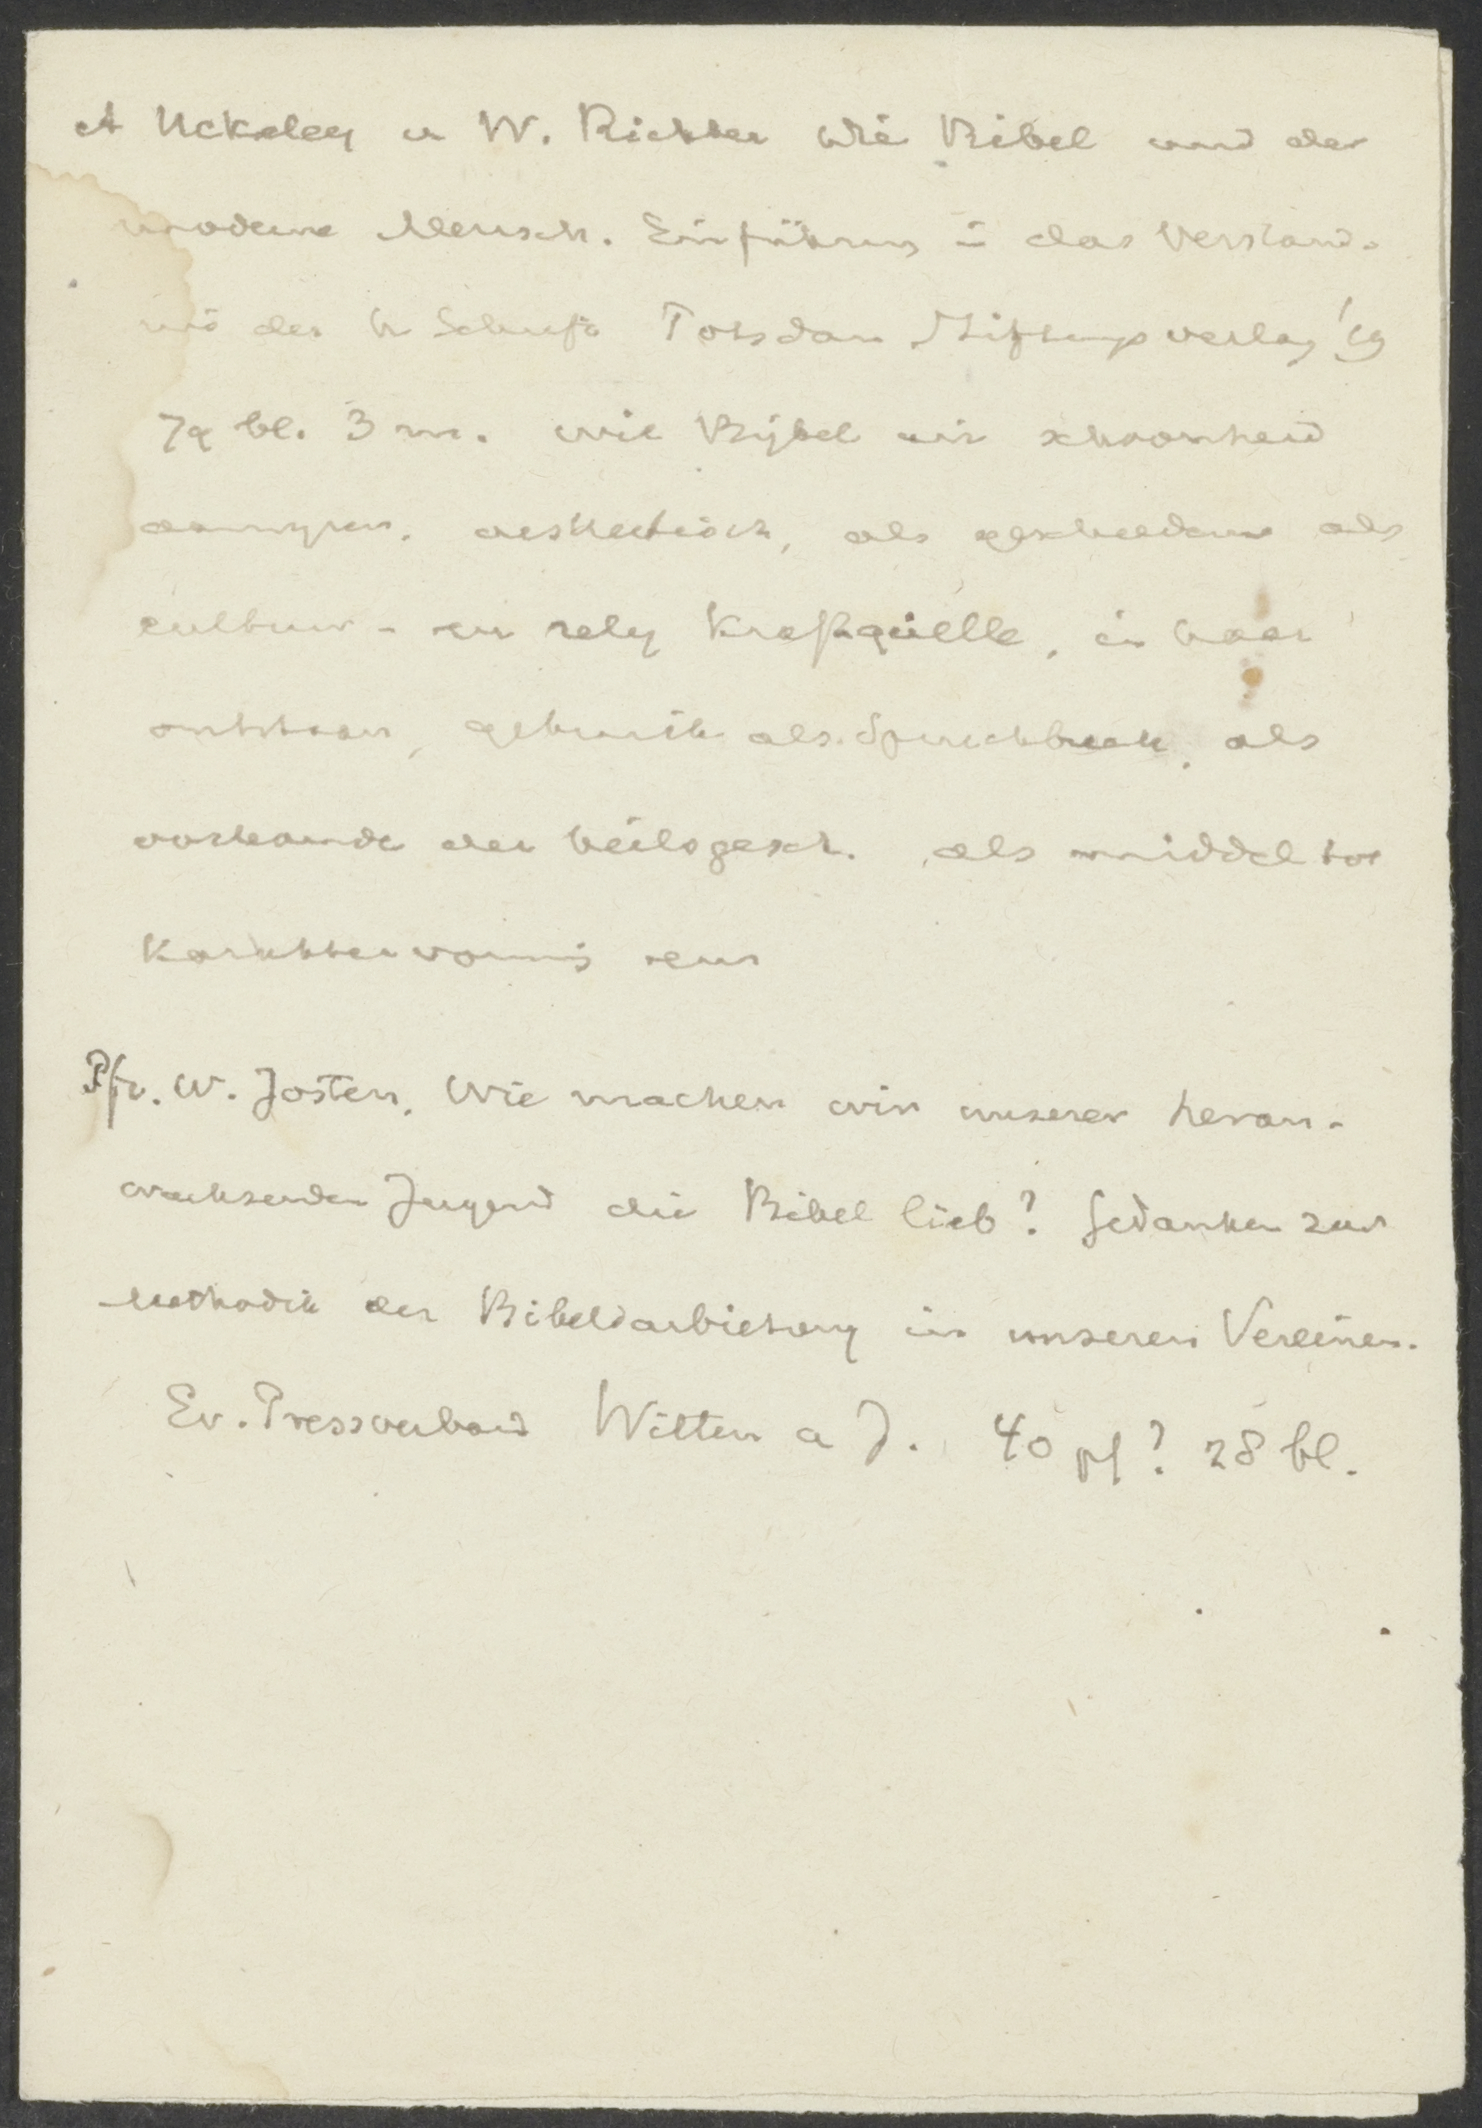 A Uckeley u W. Richter Die Bibel und der
moderne Mensch. Einführung i das Verständ-
nis der h Schrift Potsdam Stiftungsverlag '19
79 bl. 3 m. wil Bijbel uit schoonheid
aesthetisch, als geschiedenis als
cultuur- en relig Kraftquelle, in haar
ontstaan, gebruik als Spruchbuch, als
oorkonde der heilsgesch. als middel tot
karaktervorming enz
Pfr. W. Josten, Wie machen wir unserer heran-
wachsenden Jugend die Bibel lieb? Gedanken zur
Methodik der Bibeldarbietung in unseren Vereinen.
Ev. Pressverband Witten a J. 40 pf? 28 bl.